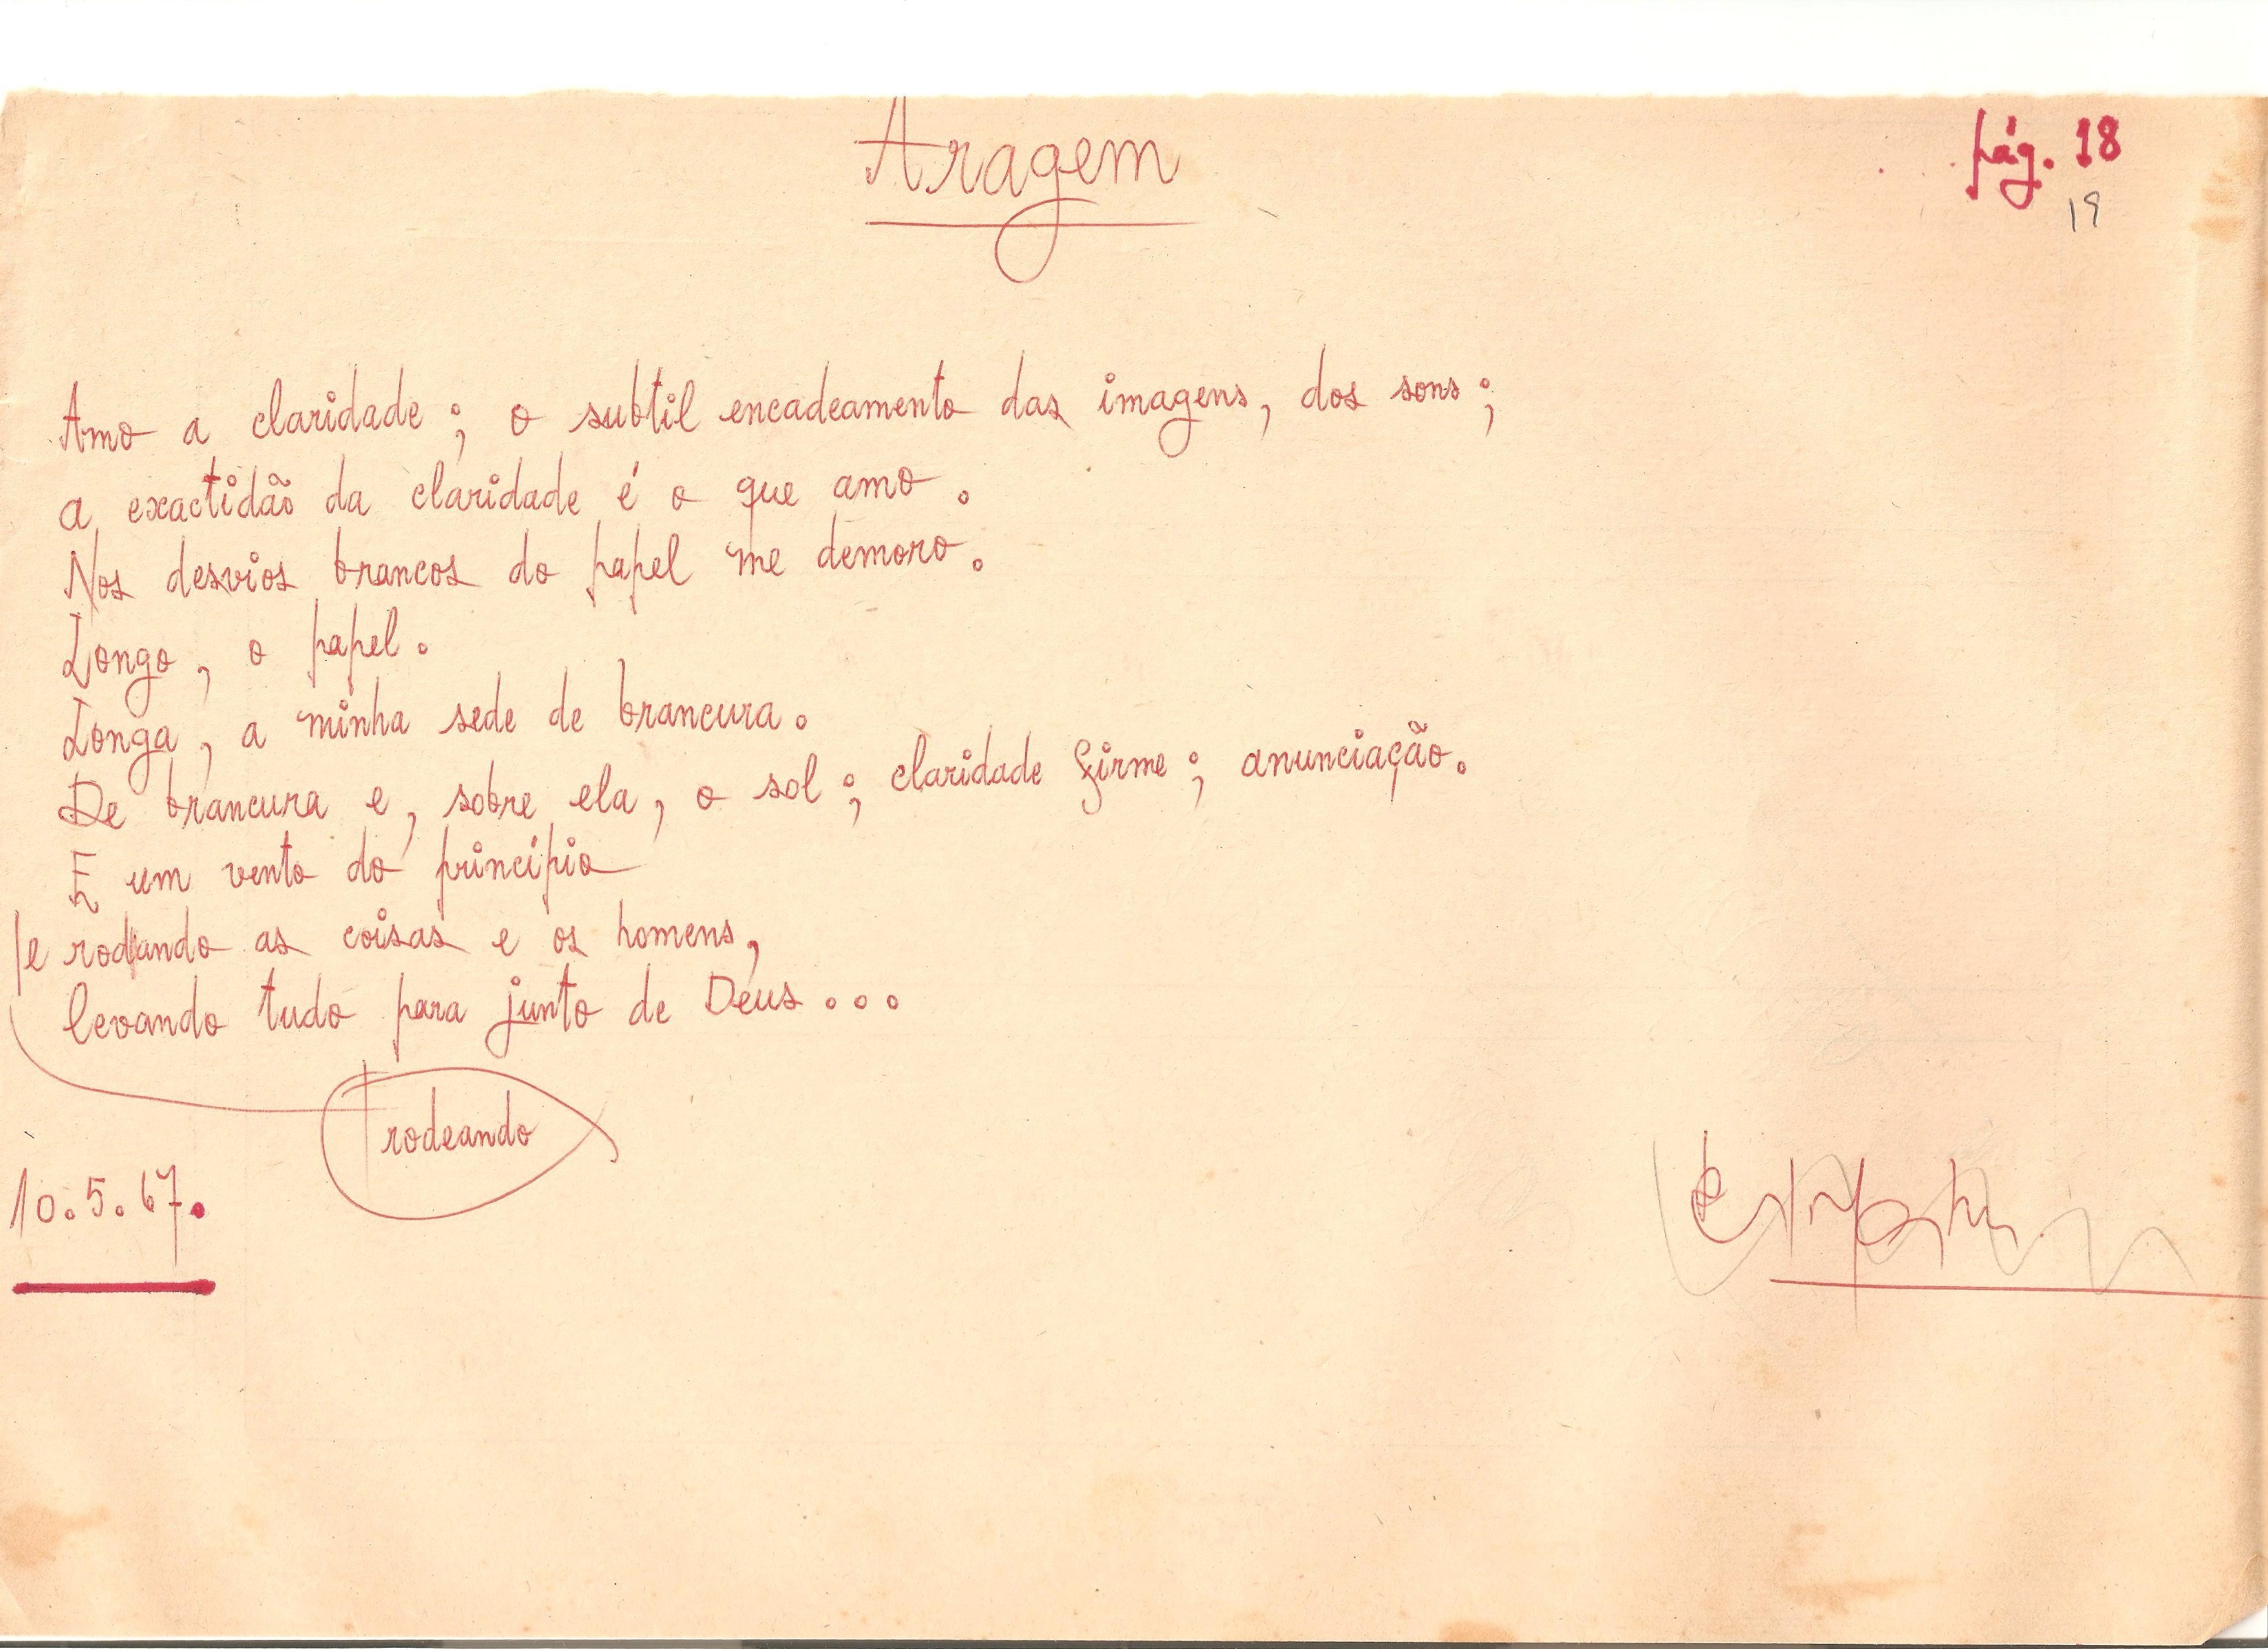 Aragem
pág. 18
19
Amo a claridade; o subtil encadeamento das imagens, dos sons;
a exactidão da claridade é o que amo.
Nos desvios brancos do papel me demoro.
Longo, o papel.
Longa, a minha sede de brancura.
De brancura e, sobre ela, o sol; claridade firme; anunciação.
E um vento do princípio
e rodando as coisas e os homens,
levando tudo para junto de Deus...
rodeando
10.5.67.